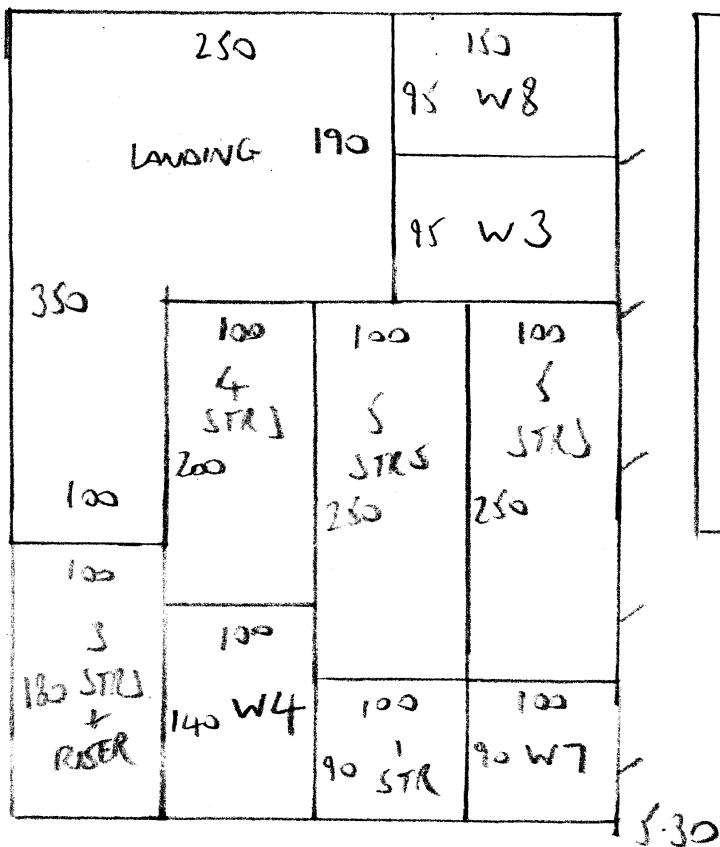 250
LANDING 190
350
100
150
95 W8
95 W3
100
4
STRS
200
100
5
STRS
250
100
5
STRS
250
100
3
180 STRS
+
RISER
100
140 W4
100
1
90 STR
100
90 W7
5.30